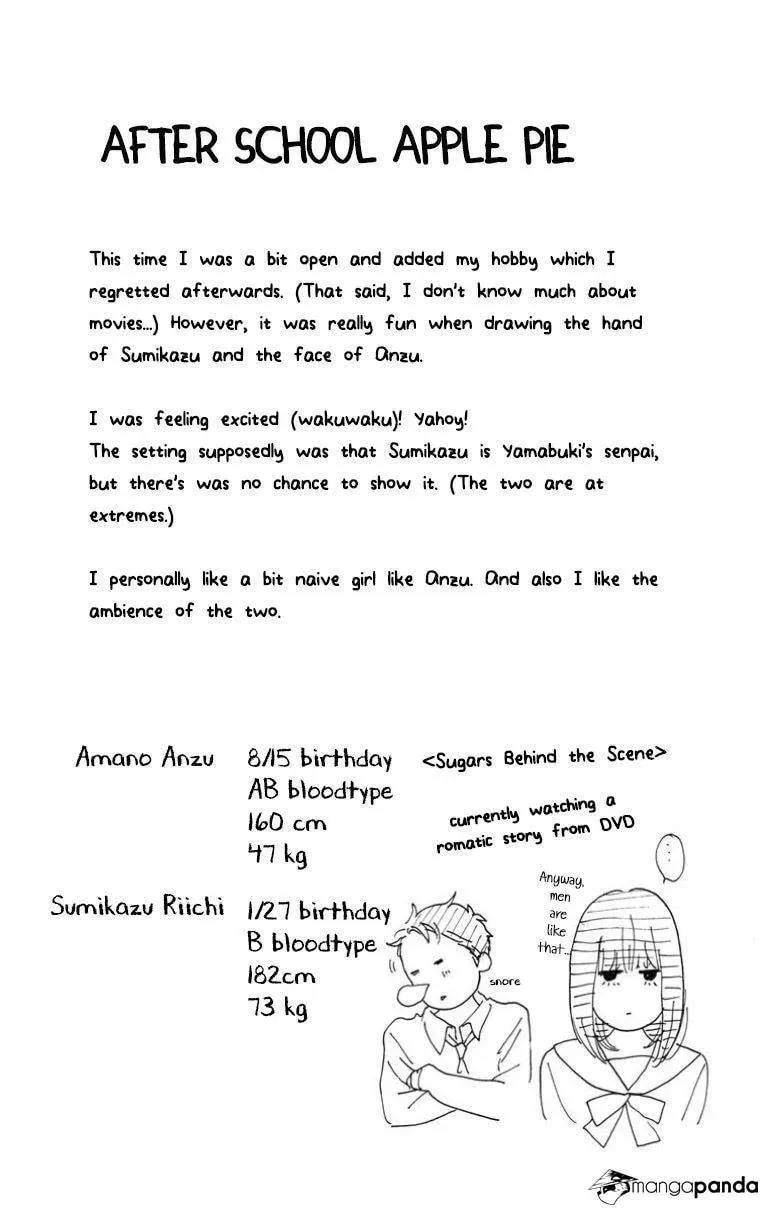 AFTER SCHOOL APPLE PIE
This time I was a bit open and added my hobby which I
regretted afterwards. (That said, I don't know much about
movies...) However, it was really fun when drawing the hand
of Sumikazu and the face of Anzu.
I was feeling excited (wakuwaku)! Yahoy!
The setting supposedly was that Sumikazu is Yamabuki's senpai,
but there's was no chance to show it. (The two are at
extremes.)
I personally like a bit naive girl like Anzu. And also I like the
ambience of the two.
Amano Anzu 8/15 birthday
AB bloodtype
160 cm
47 kg
Sumikazu Riichi 1/27 birthday
B bloodtype
182cm
73 kg
<Sugars Behind the Scene>
currently watching a
romatic story from DVD
snore
Anyway,
men
are
like
that...
...
mangapanda